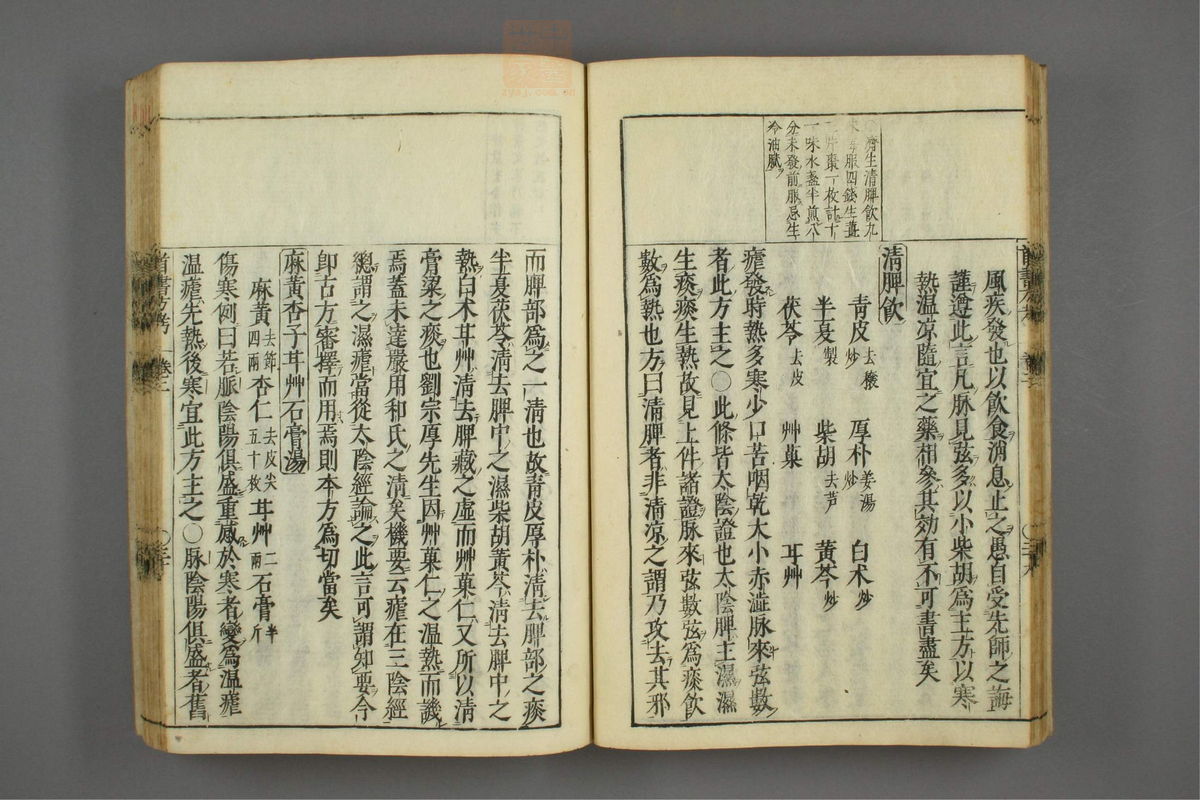 濟生清脾飲九
味每服四錢生薑
三片棗一枚計十
一味水盞半煎八
分未發前服忌生
冷油膩
風疾發也以飲食消息止之愚自受先師之誨
謹遵此言凡脈見弦多以小柴胡爲主方以寒
熱温凉隨宜之藥相參其効有不可書盡矣
清脾飲
青皮去穰炒 厚朴姜湯炒 白术炒
半夏製 柴胡去芦 黃芩炒
茯苓去皮 艸菓 耳艸
瘧發時熱多寒少口苦咽乾大小赤澁脈來弦數
者此方主之○此條皆太陰證也太陰脾主濕濕
生痰痰生熱故見上件諸證脈來弦數弦爲痰飲
數爲熱也方曰清脾者非清凉之謂乃攻去其邪
而脾部爲之一清也故青皮厚朴清去脾部之痰
半夏茯苓清去脾中之濕柴胡黃芩清去脾中之
熱白术耳艸清去脾藏之虛而艸菓仁又所以清
膏梁之痰也劉宗厚先生因艸菓仁之温熱而譏
焉蓋未達嚴用和氏之清矣機要云瘧在三陰經
總謂之濕瘧當從太陰經論之此言可謂知要今
即古方審擇而用焉則本方爲切當矣
麻黃杏子耳艸石膏湯
麻黃去節四兩 杏仁去皮尖五十枚 耳艸二兩 石膏半斤
傷寒例曰若脈陰陽俱盛重感於寒者變爲温瘧
温瘧先熱後寒宜此方主之○脉陰陽俱盛者舊